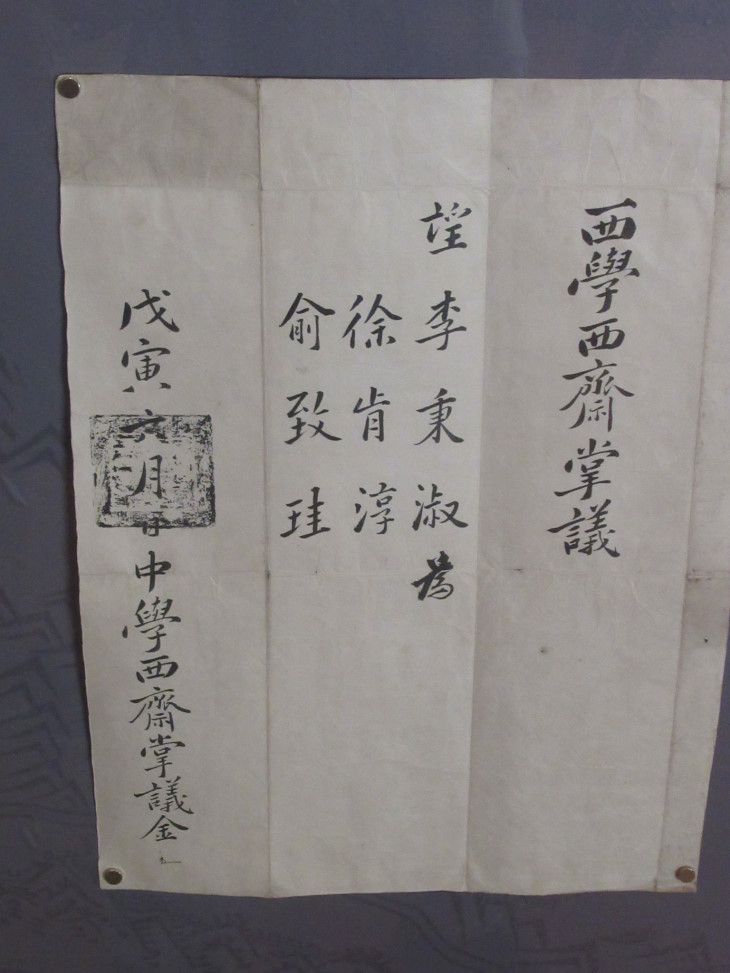 西學西齋掌議
望李秉淑爲
徐肯淳
俞致珪
戊寅六月日中學西齋掌議金